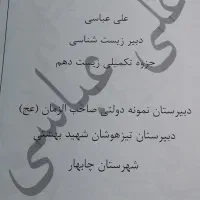 علی عباسی
دبیر زیست شناسی
جزوه تکمیلی زیست دهم
دبیرستان نمونه دولتی صاحب الزمان (عج)
دبیرستان تیزهوشان شهید بهشتی
شهرستان چابهار
علی عباسی